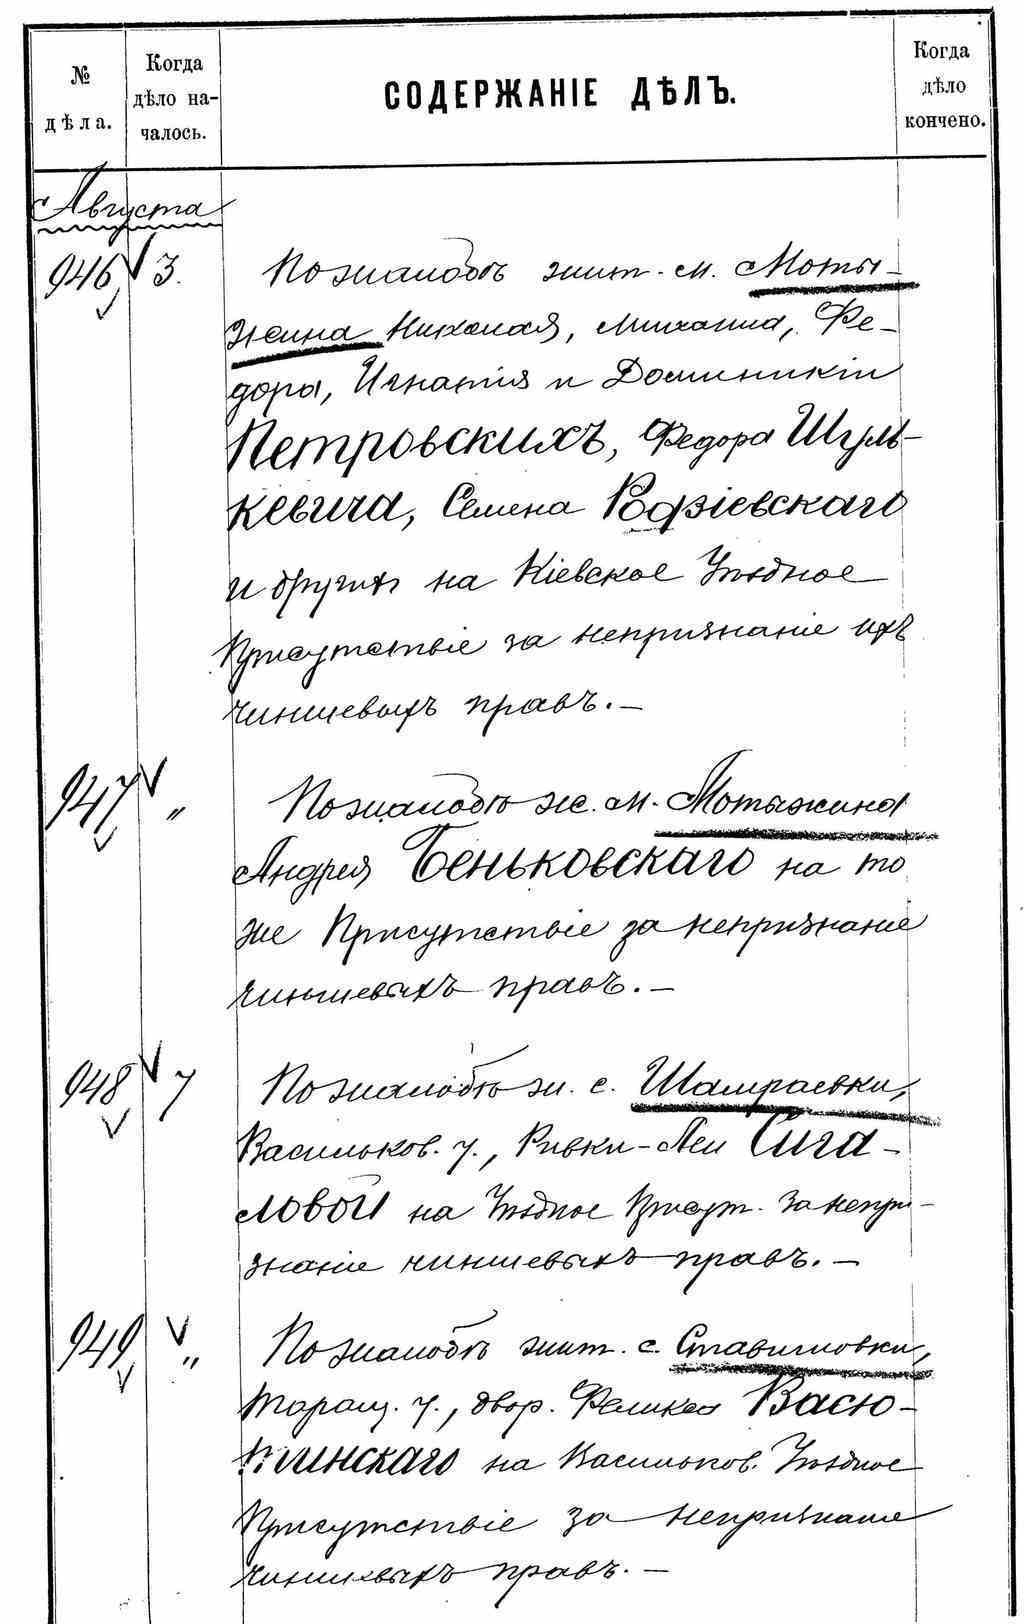 № дѣла.
Когда дѣло на-
чалось.
СОДЕРЖАНІЕ ДѢЛЪ.
Когда дѣло кончено.
Августа
946 3. По жалобѣ жит. м. Моты-
жина Николая, Михаила, Фе-
дора, Игнатія и Доминикіи
Петровскихъ, Федора Шуль-
кевича, Семена Родзіевскаго
и других на Кіевское Уѣздное
Присутствіе за непризнаніе ихъ
чиншевыхъ правъ. —
947 „ По жалобѣ ж. м. Мотыжина
Андрея Беньковскаго на то
же Присутствіе за непризнаніе
чиншевыхъ правъ. —
948 7 По жалобѣ ж. с. Шамраевки,
Васильков. у., Ривки-Леи Сига-
ловой на Уѣздное Присут. за непри-
знаніе чиншевыхъ правъ. —
949 „ По жалобѣ жит. с.
Таращ. у., двор. Феликса Васю-
тинскаго на Васильков. Уѣздное
Присутствіе за непризнаніе
чиншевыхъ правъ. —